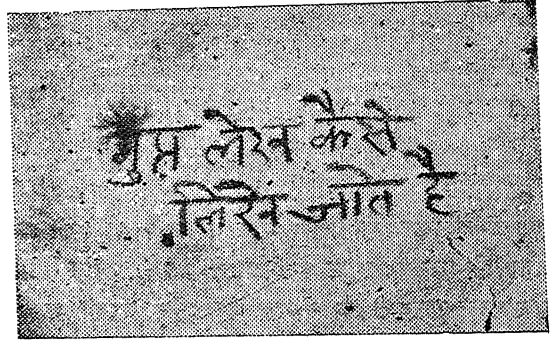 गुप्त लेख कैसे
लिखे जाते है